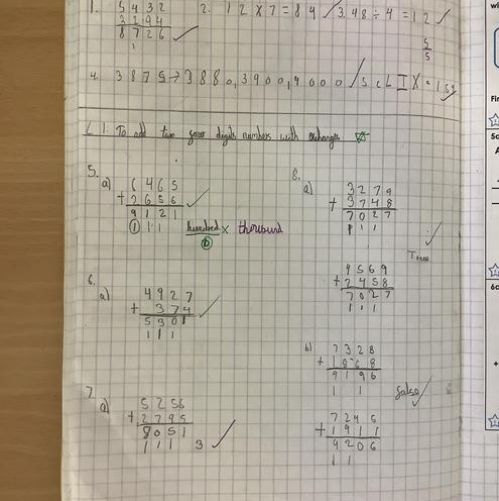 1. 5432
3294
8726
1
2. 12 x 7 = 84
3. 48 ÷ 4 = 12
5/5
4. 3875 → 3880, 3900, 4000
5. CLIX = 159
L I. To add two four digits numbers with exchanges
5.
a) 6465
+ 2656
9121
1 1 1
hundred x thousand
6.
a) 4927
+ 374
5301
1 1 1
7.
a) 5256
+ 2795
8051
1 1 1 3
8.
a) 3279
+ 3748
7027
1 1 1
True
4569
+ 2458
7027
1 1 1
b) 7328
+ 1868
9196
1 1
false
7245
+ 1911
9206
1 1